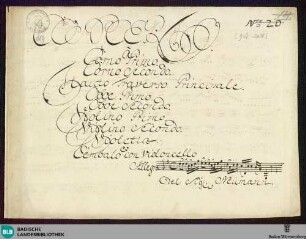 CONCERTO
No 20
Corno Primo
Corno Secondo
Flauto Traverso Principale
Oboe Primo
Oboe Secondo
Violino Primo
Violino Secondo
Violetta
Cembalo con Violoncello
Allegro
Del Sigr.
BLB
BADISCHE
LANDESBIBLIOTHEK
Baden-Württemberg